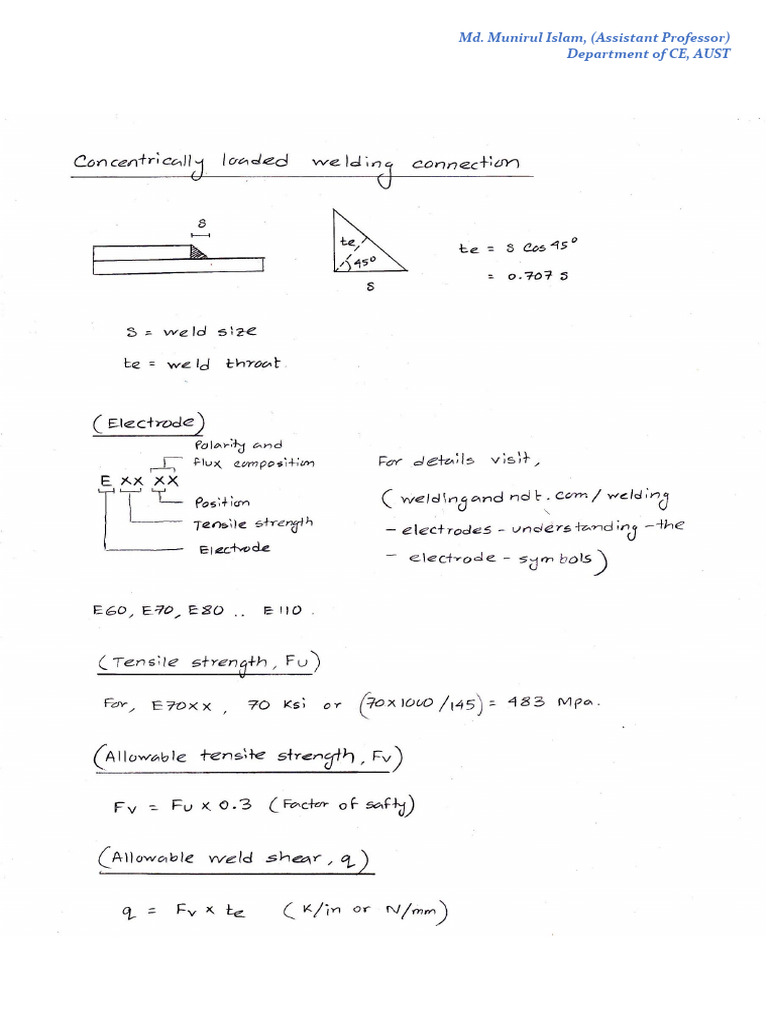 Md. Munirul Islam, (Assistant Professor)
Department of CE, AUST
Concentrically loaded welding connection
s
te
45°
s
te = s cos 45°
= 0.707 s
s = weld size
te = weld throat.
(Electrode)
Polarity and
flux composition
E XX XX
Position
Tensile strength
Electrode
For details visit,
(weldingandndt.com/welding
-electrodes-understanding-the
- electrode-symbols)
E60, E70, E80 .. E110.
(Tensile strength, Fu)
For, E70XX, 70 Ksi or (70×1000/145) = 483 Mpa.
(Allowable tensite strength, Fv)
Fv = Fu × 0.3 (Factor of safty)
(Allowable weld shear, q)
q = Fv × te (K/in or N/mm)